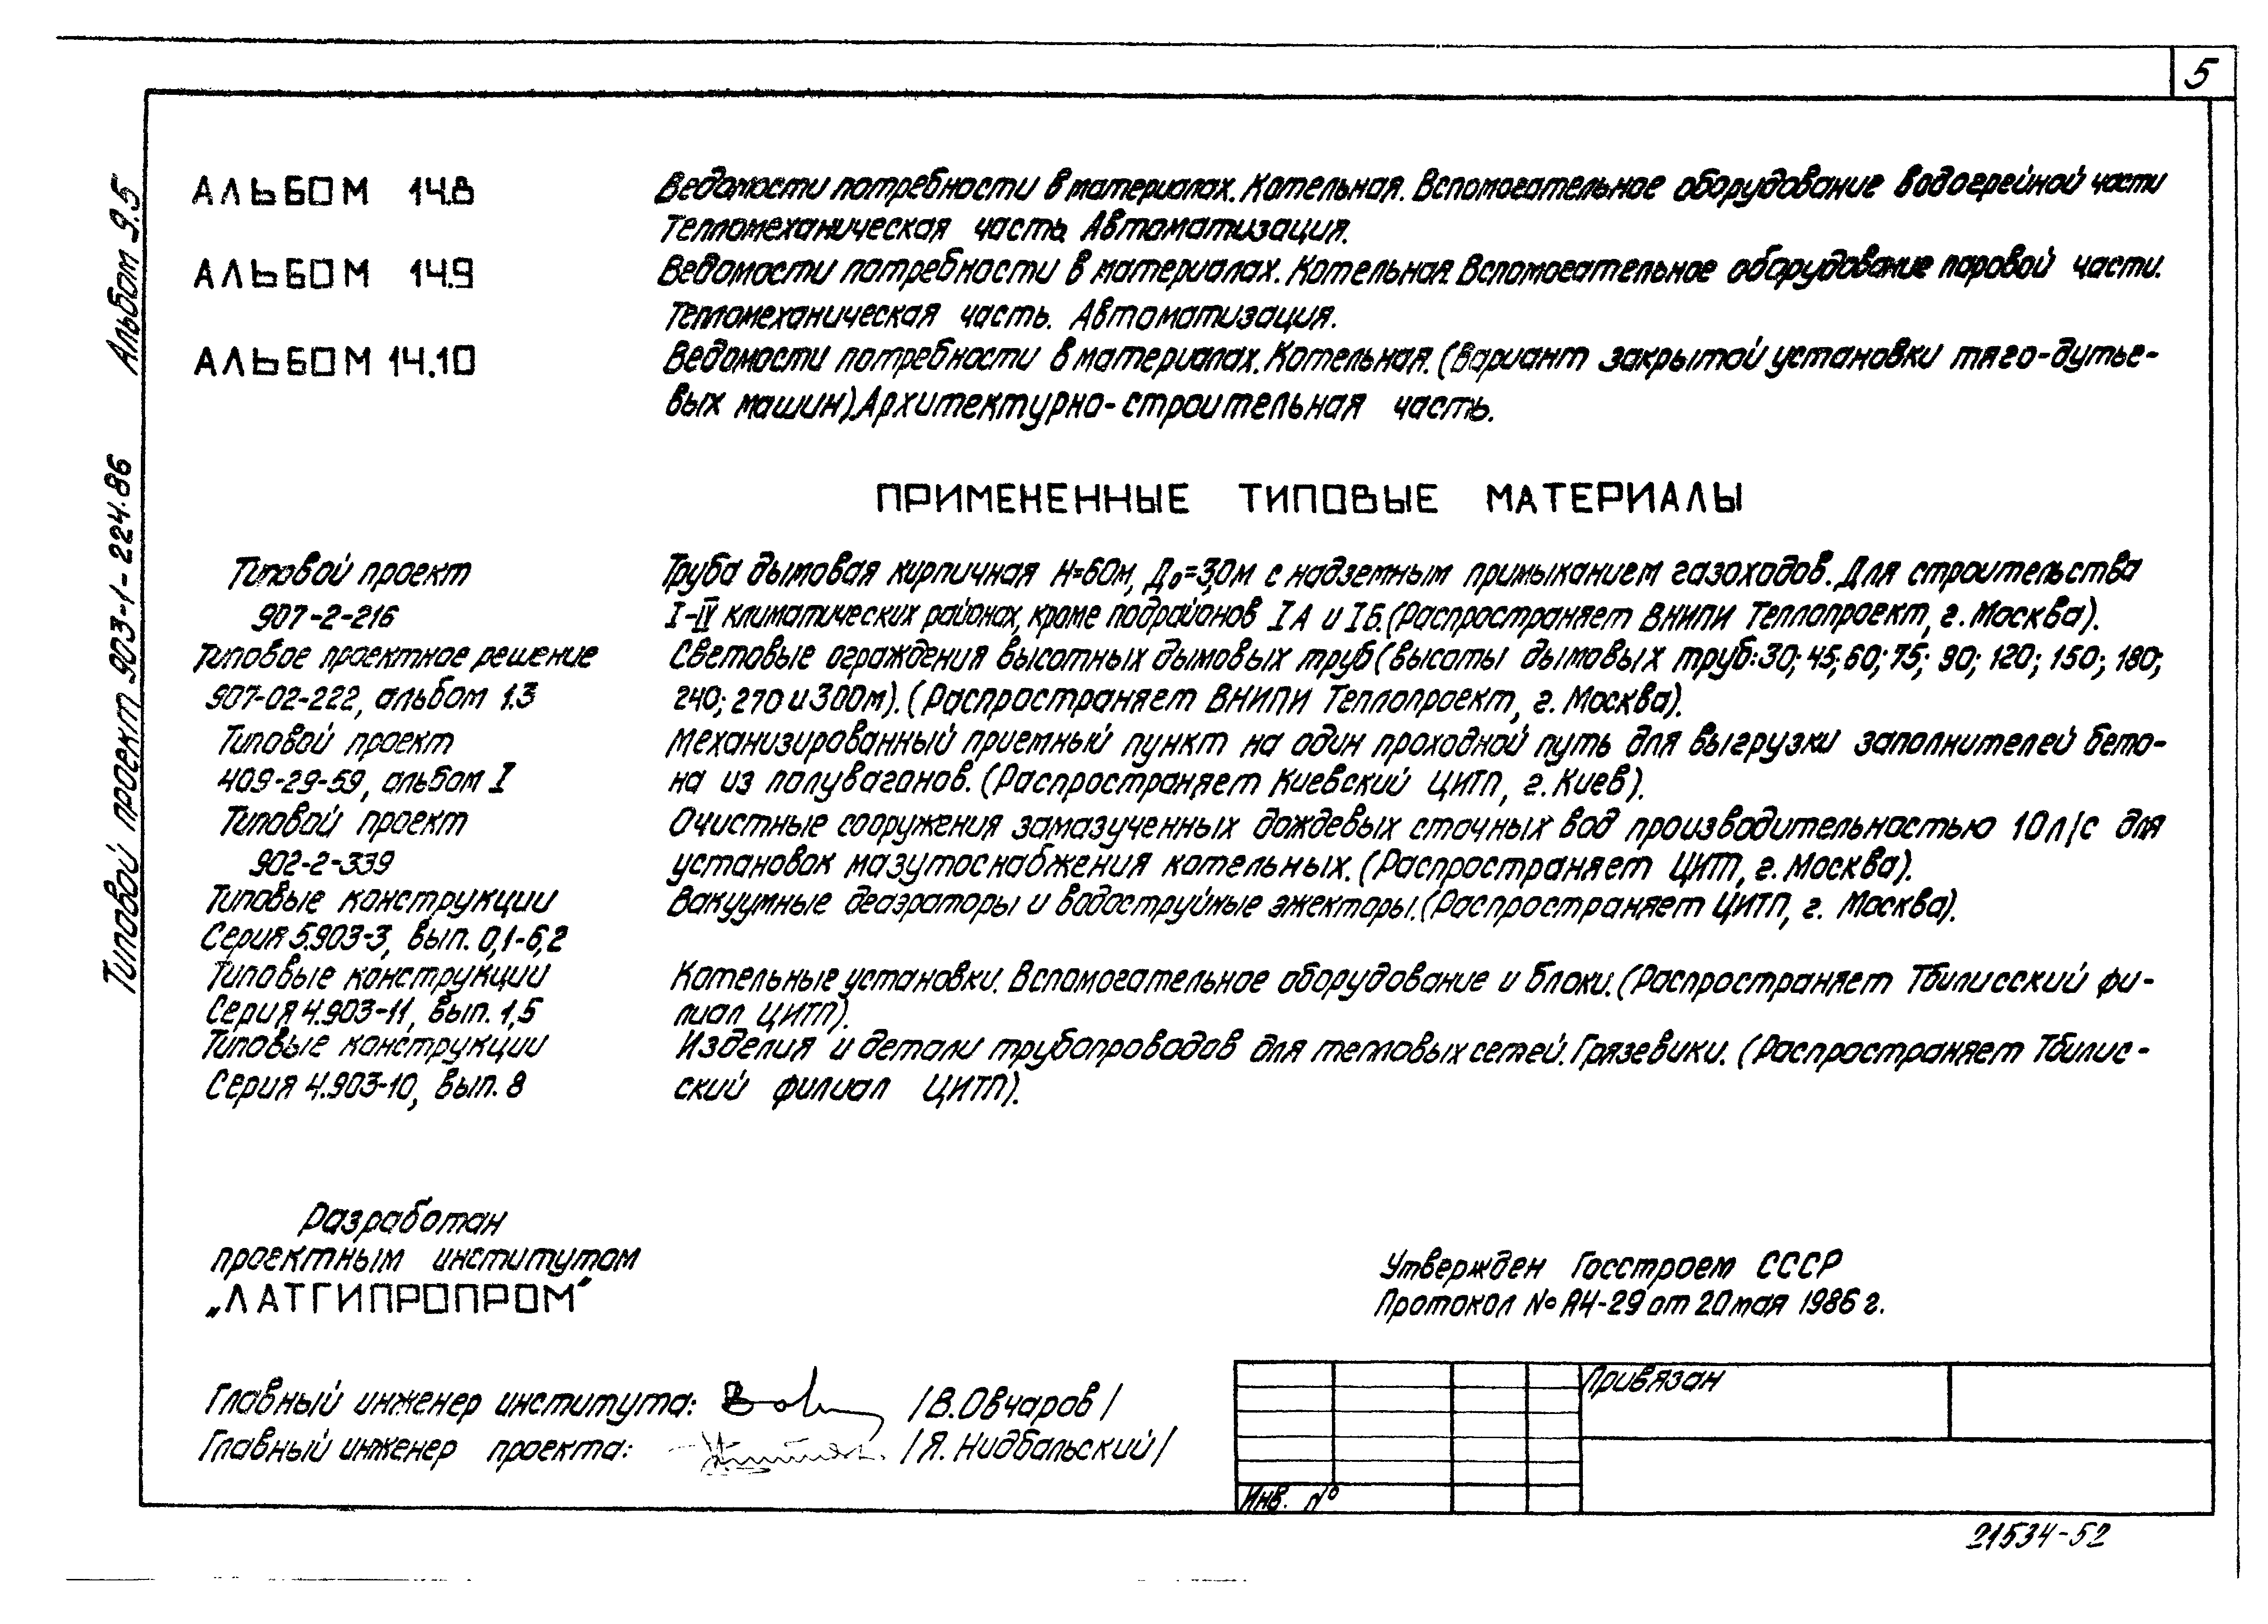 5
Типовой проект 903-1-224.86 Альбом 9.5
АЛЬБОМ 14.8 Ведомости потребности в материалах. Котельная. Вспомогательное оборудование водогрейной части
Тепломеханическая часть. Автоматизация.
АЛЬБОМ 14.9 Ведомости потребности в материалах. Котельная. Вспомогательное оборудование паровой части.
Тепломеханическая часть. Автоматизация.
АЛЬБОМ 14.10 Ведомости потребности в материалах. Котельная. (Вариант закрытой установки тяго-дутье-
вых машин). Архитектурно-строительная часть.
ПРИМЕНЕННЫЕ ТИПОВЫЕ МАТЕРИАЛЫ
Типовой проект Труба дымовая кирпичная Н=60м, До=3,0м с надземным примыканием газоходов. Для строительства
907-2-216 I-IV климатических районах, кроме подрайонов IА и IБ. (Распространяет ВНИПИ Теплопроект, г. Москва).
Типовое проектное решение Световые ограждения высотных дымовых труб (высоты дымовых труб: 30; 45; 60; 75; 90; 120; 150; 180;
907-02-222, альбом 1.3 240; 270 и 300м). (Распространяет ВНИПИ Теплопроект, г. Москва).
Типовой проект Механизированный приемный пункт на один проходной путь для выгрузки заполнителей бето-
409-29-59, альбом I на из полувагонов. (Распространяет Киевский ЦИТП, г. Киев).
Типовой проект Очистные сооружения замазученных дождевых сточных вод производительностью 10 л/с для
902-2-339 установок мазутоснабжения котельных. (Распространяет ЦИТП, г. Москва).
Типовые конструкции Вакуумные деаэраторы и водоструйные эжекторы. (Распространяет ЦИТП, г. Москва).
Серия 5.903-3, вып. 0,1-6,2
Типовые конструкции Котельные установки. Вспомогательное оборудование и блоки. (Распространяет Тбилисский фи-
Серия 4.903-11, вып. 1,5 лиал ЦИТП).
Типовые конструкции Изделия и детали трубопроводов для тепловых сетей. Грязевики. (Распространяет Тбилис-
Серия 4.903-10, вып. 8 ский филиал ЦИТП).
Разработан
проектным институтом
„ЛАТГИПРОПРОМ"
Утвержден Госстроем СССР
Протокол № АЧ-29 от 20 мая 1986 г.
Главный инженер института: /В.Овчаров/
Главный инженер проекта: /Я. Нидбальский/
Привязан
Инв. №
21534-52